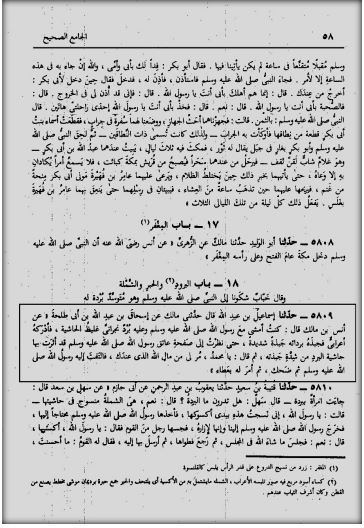 ٥٨ الجامع الصحيح
وسلم مُقبلًا مُتقنِّعًا في ساعة لم يكن يأتينا فيها . فقال أبو بكر : فِدًا لك بأبي وأُمي ، والله إنْ جاء به في هذه
الساعة إلا لأمر . فجاءَ النبيُّ صلى الله عليه وسلم فاستأذنَ ، فأذِنَ له ، فدخل فقال حين دخل لأبي بكر :
أخرِجْ من عندَك . قال : إنما هم أهلُك بأبي أنت يا رسول الله . قال : فإني قد أُذِنَ لي في الخروج . قال :
فالصحبةَ بأبي أنت يا رسول الله . قال : نعم . قال : فخُذْ بأبي أنت يا رسول الله إحدى راحلتيَّ هاتين . قال
النبيُّ صلى الله عليه وسلم : بالثمن . قالت : فجهَّزناهما أحثَّ الجهاز ، ووضعنا لهما سُفرةً في جِراب ، فقطعَت أسماءُ بنتُ
أبي بكر قطعة من نِطاقِها فأوكأت به الجرابَ – ولذلك كانت تُسمى ذاتَ النِّطاقين – ثم لحق النبيُّ صلى الله
عليه وسلم وأبو بكر بغار في جبل يقال له ثور ، فمكث فيه ثلاثَ ليال ، يَبيتُ عندَهما عبدُ الله بن أبي بكر
وهوَ غلامٌ شابٌّ لَقِنٌ ثَقِف – فيرحلُ من عندِهما سحَرًا فيُصبحُ من قريش بمكةَ كبائت ، فلا يَسمعُ أمرًا يُكادانِ
به إلا وَعاهُ ، حتى يأتيَهما بخبر ذلك حينَ يَختلطُ الظلام ، ويَرعى عليهما عامرُ بن فُهيرةَ مولى أبي بكر مِنحةً
من غنم ، فيُريحُها عليهما حين تذهبُ ساعةٌ من العِشاء ، فيبيتان في رِسْلِهما حتى يَنعِقَ بهما عامرُ بن فُهيرةَ
بغَلَس ، يَفعلُ ذلك كلَّ ليلة من تلك الليالي الثلاث »
١٧ – باب المِغْفَر(١)
٥٨٠٨ – حدَّثنا أبو الوَليدِ حدَّثنا مالكٌ عن الزُّهريِّ « عن أنسٍ رضيَ الله عنه أن النبي صلى الله عليه
وسلم دخل مكةَ عامَ الفتح وعلى رأسه المِغْفَر »
١٨ – باب البرود(٢) والحبرِ والشَّمْلة
وقال خَبّابٌ شكَونا إلى النبي صلى الله عليه وسلم وهو مُتوسِّدٌ بُردةً له
٥٨٠٩ – حدَّثنا إسماعيلُ بن عبد الله قال حدَّثني مالكٌ عن إسحاقَ بن عبد الله بن أبي طلحةَ « عن
أنس بن مالك قال : كنتُ أمشي مع رسول الله صلى الله عليه وسلم وعليه بُرْدٌ نَجرانيٌّ غليظُ الحاشية ، فأدْرَكهُ
أعرابيٌّ فجبذَهُ بردائه جَبْذةً شديدةً ، حتى نظرتُ إلى صَفحةِ عاتقِ رسول الله صلى الله عليه وسلم قد أثَّرَت بها
حاشيةُ البرد من شِدَّةِ جَبذتِه ، ثم قال : يا محمدُ ، مُر لي من مالِ الله الذي عندَك ، فالتفتَ إليه رسولُ الله صلى
الله عليه وسلم ثم ضحك ، ثم أمرَ له بعطاء »
٥٨١٠ – حدَّثنا قُتيبةُ بن سعيدٍ حدَّثنا يعقوبُ بن عبد الرحمٰن عن أبي حازمٍ « عن سهلِ بن سعد قال :
جاءتِ امرأةٌ ببُردة – قال سَهلٌ : هل تدرونَ ما البُردة ؟ قال : نعم ، هيَ الشملةُ منسوجٌ في حاشيتها –
قالت : يا رسولَ الله ، إني نسجتُ هذه بيدي أكسوكها ، فأخذها رسولُ الله صلى الله عليه وسلم محتاجًا إليها ،
فخرجَ رسول الله صلى الله عليه وسلم إلينا وإنها لإزارُه ، فجسَّها رجلٌ من القوم فقال : يا رسولَ الله ، اكسُنيها ،
قال : نعم : فجلسَ ما شاءَ الله في المجلس ، ثم رجَعَ فطَواها ، ثم أرسلَ بها إليه ، فقال له القومُ : ما أحسنتَ ،
(١) المغفر : زرد من نسيج الدروع على قدر الرأس يلبس كالقلنسوة
(٢) كساء أسود مربع فيه صور تلبسه الأعراب ، الشملة مايشتمل به من الأكسية أي يلتحف والحبر جمع حبرة بردمان موشى مخطط يصنع من
القطن وكان أشرف الثياب عندهم .